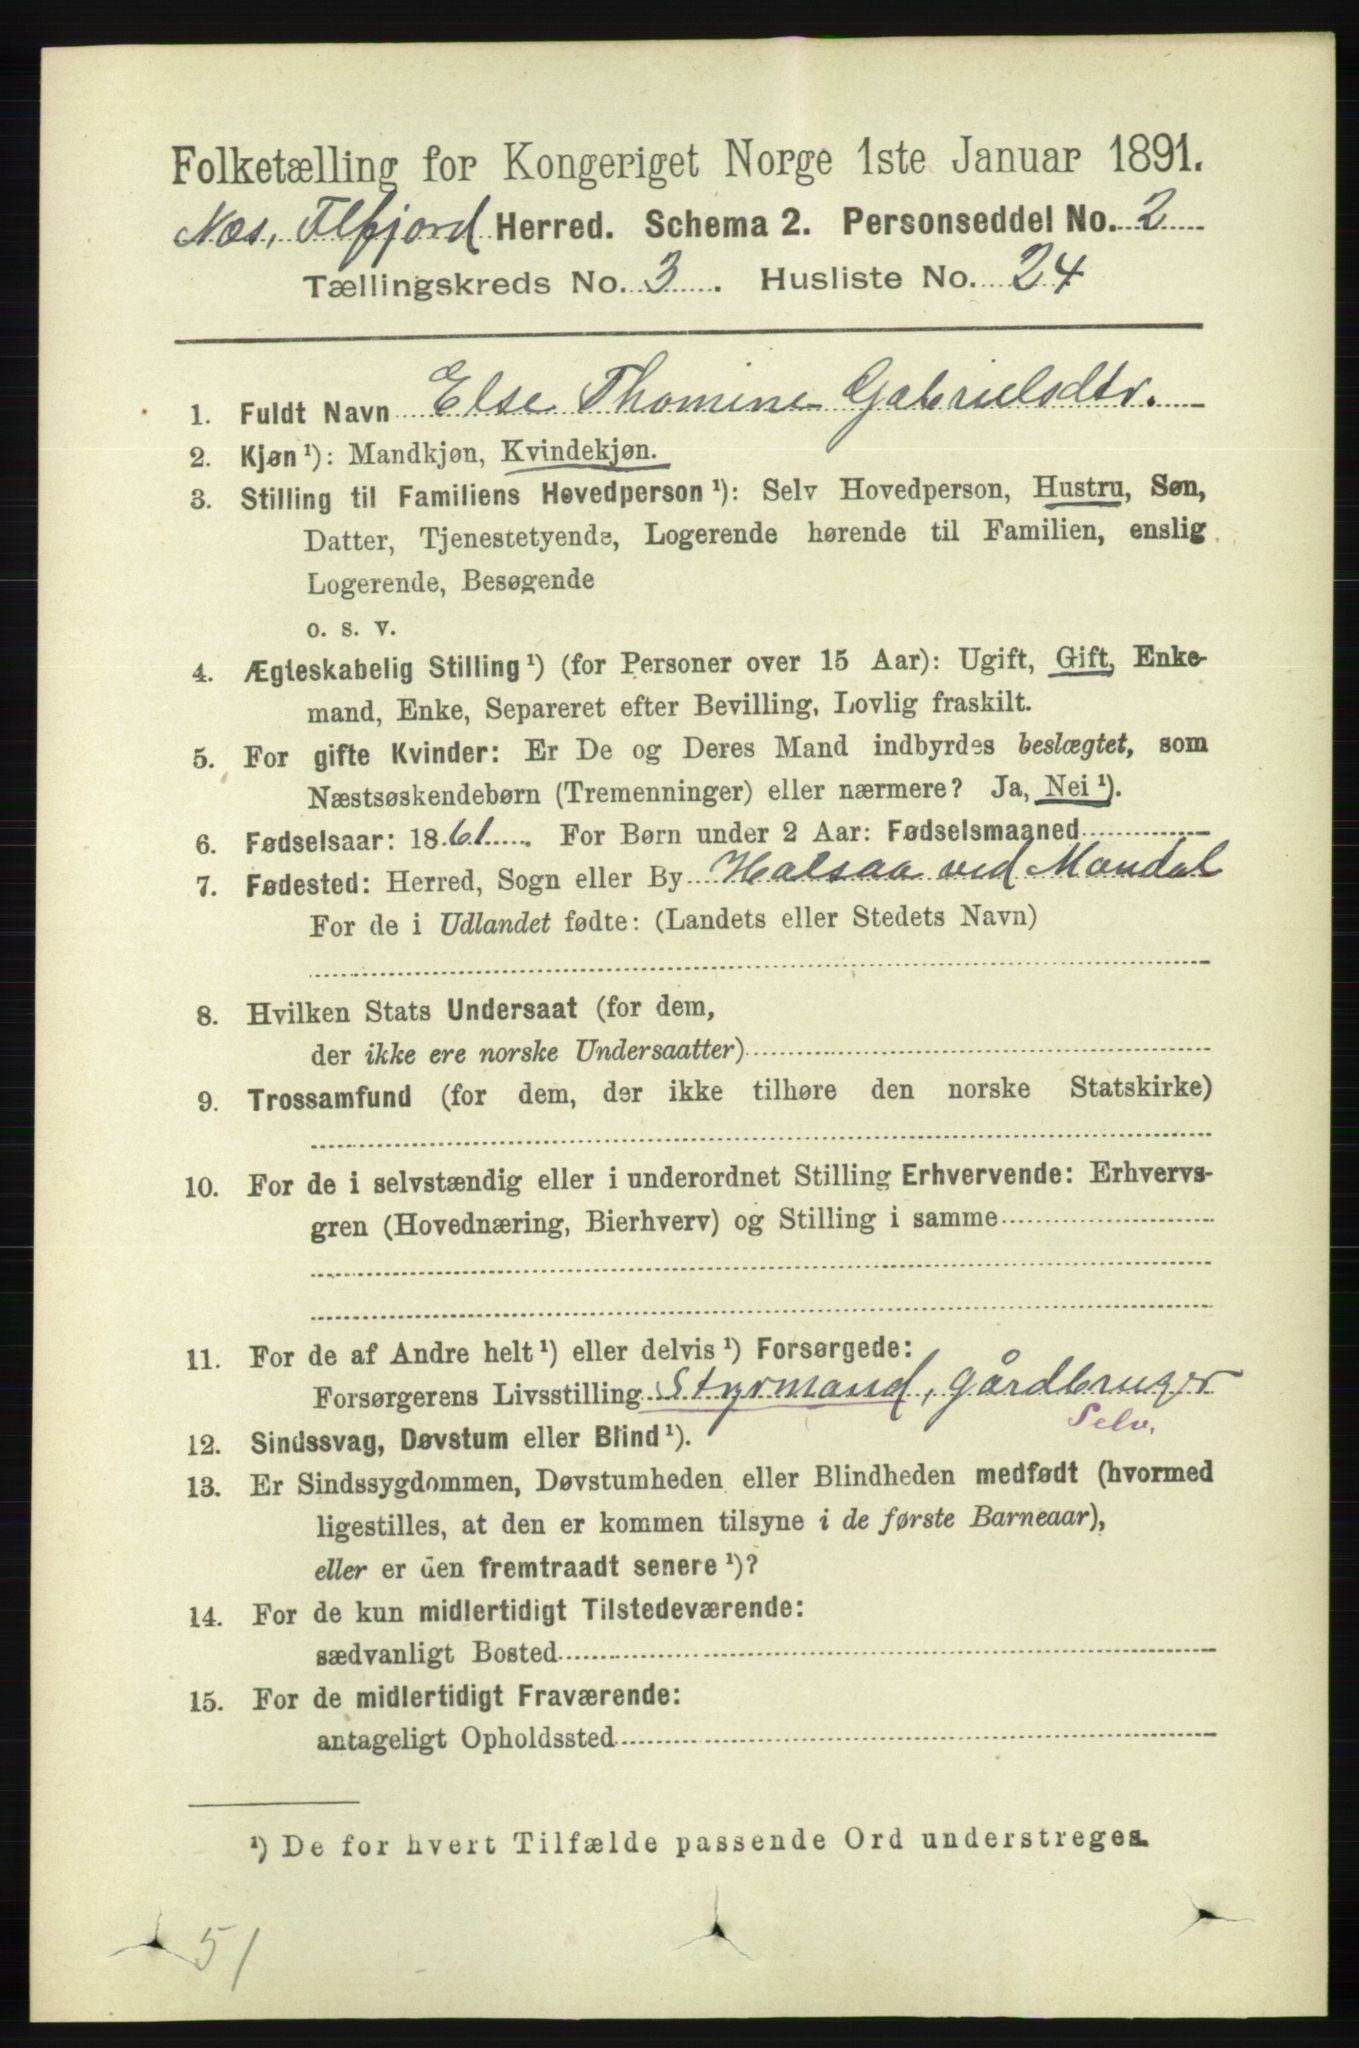 Folketælling for Kongeriget Norge 1ste Januar 1891.
Næs, Flekkefjord Herred. Schema 2. Personseddel No. 2
Tællingskreds No. 3. Husliste No. 24
1. Fuldt Navn Else Thomine Gabrielsdtr.
2. Kjøn ¹): Mandkjøn, Kvindekjøn.
3. Stilling til Familiens Hovedperson ¹): Selv Hovedperson, Hustru, Søn,
Datter, Tjenestetyende, Logerende hørende til Familien, enslig
Logerende, Besøgende
o. s. v.
4. Ægteskabelig Stilling ¹) (for Personer over 15 Aar): Ugift, Gift, Enke-
mand, Enke, Separeret efter Bevilling, Lovlig fraskilt.
5. For gifte Kvinder: Er De og Deres Mand indbyrdes beslægtet, som
Næstsøskendebørn (Tremenninger) eller nærmere? Ja, Nei ¹).
6. Fødselsaar: 1861. For Børn under 2 Aar: Fødselsmaaned
7. Fødested: Herred, Sogn eller By Halsaa ved Mandal
For de i Udlandet fødte: (Landets eller Stedets Navn)
8. Hvilken Stats Undersaat (for dem,
der ikke ere norske Undersaatter)
9. Trossamfund (for dem, der ikke tilhøre den norske Statskirke)
10. For de i selvstændig eller i underordnet Stilling Erhvervende: Erhvervs-
gren (Hovednæring, Bierhverv) og Stilling i samme
11. For de af Andre helt ¹) eller delvis ¹) Forsørgede:
Forsørgerens Livsstilling Styrmand, gårdbruger
Selv.
12. Sindssvag, Døvstum eller Blind ¹).
13. Er Sindssygdommen, Døvstumheden eller Blindheden medfødt (hvormed
ligestilles, at den er kommen tilsyne i de første Barneaar),
eller er den fremtraadt senere ¹)?
14. For de kun midlertidigt Tilstedeværende:
sædvanligt Bosted
15. For de midlertidigt Fraværende:
antageligt Opholdssted
¹) De for hvert Tilfælde passende Ord understreges.
51